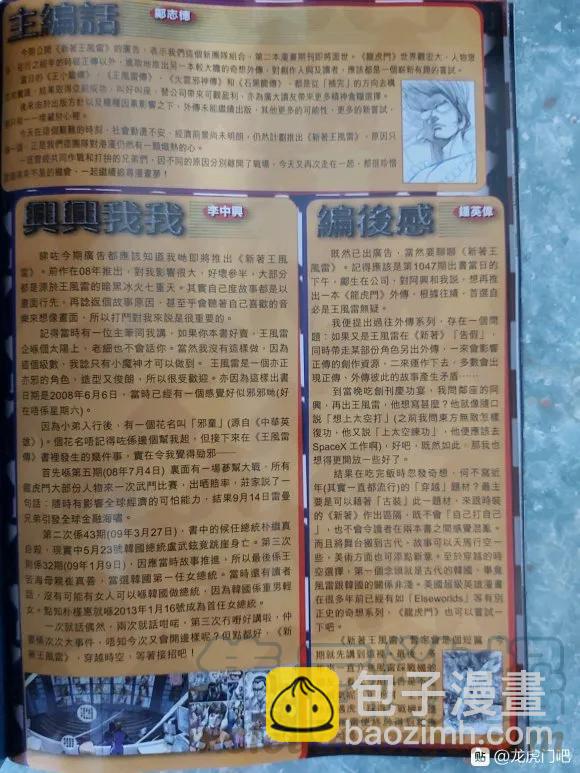 主編話
鄺志德
今期公開《新著王風雷》的廣告，表示我們這個新團隊組合，第二本漫畫期刊即將面世。《龍虎門》世界觀宏大，人物眾
以外，進取地推出另一本較大膽的奇想外傳，對創作人與及讀者，應該都是一個嶄新有趣的嘗試。
當日的《王小龍傳》、《王風雷傳》、《火雲邪神傳》和《石黑龍傳》，都是從「補完」的方向去構
結果取得空前成功，叫好叫座，替公司帶來可觀盈利，亦為廣大讀友帶來更多精神食糧選擇。
後來由於出版方針以及種種因素影響之下，外傳未能繼續出版，其他更多的可能性，更多的新嘗試，
埋藏於心裡。
今天在這個艱難的時刻，社會動盪不安，經濟前景尚未明朗，仍然計劃推出《新著王風雷》，原因只
正是我們這團隊對港漫仍然有一顆熾熱的心。
一這曾經共同作戰和打拚的兄弟們，因不同的原因分別離開了戰場，今天又再次走在一起，都很珍惜
的機會，一起繼續追尋漫畫夢！
興興我我
李中興
睇咗今期廣告都應該知道我哋即將推出《新著王風
雷》。前作在08年推出，對我影響很大，好壞參半，大部分
都是源於王風雷的暗黑冰火七重天。其實自己度故事都是以
畫面行先，再諗返個故事原因，甚至乎會聽著自己喜歡的音
樂來想像畫面，所以打鬥對我來說是很重要的。
記得當時有一位主筆同我講，如果你本書好賣，王風雷
企喺個太陽上，老細也不會話你。當然我沒有這樣做，因為
這個級數，我諗只有小魔神才可以做到。 王風雷是一個亦正
亦邪的角色，造型又俊朗，所以很受歡迎。亦因為這樣出書
日期是2008年6月6日，當時已經有一個感覺好似邪邪哋(好
在唔係星期六)。
因為小弟入行後，有一個花名叫「邪童」(源自《中華英
雄》)。個花名唔記得咗係邊個幫我起，但接下來在《王風雷
傳》書裡發生的幾件事，實在令我覺得勁邪──
首先喺第五期(08年7月4日) 裏面有一場慕幫大戰，所有
龍虎門大部份人物來一次武鬥比賽，出晒賠率，莊家說了一
句話：隨時有影響全球經濟的可怕能力，結果9月14日雷曼
兄弟引發全球金融海嘯。
第二次係43期(09年3月27日)，書中的候任總統朴繼真
自殺，現實中5月23號韓國總統盧武鉉竟跳崖身亡。第三次
則係32期(09年1月9日)，因應當時故事推進，所以最後係王
雷海母親崔真善，當選韓國第一任女總統。當時還有讀者
話，沒有可能有女人可以喺韓國做總統，因為韓國係重男輕
女。點知朴槿惠就喺2013年1月16號成為首任女總統。
一次就話偶然，兩次就話咁啱，第三次冇嘢好講啦，仲
要係次次大事件，唔知今次又會開邊樣呢？但點都好，《新
著王風雷》，穿越時空，等著接招吧！
編後感
鍾英偉
既然已出廣告，當然要聊聊《新著王
風雷》。記得應該是第1047期出書當日的
下午，鄺生在公司，對阿興和我說，想再推
出一本《龍虎門》外傳，根據往績，首選自
必是王風雷無疑。
我便提出過往外傳系列，存在一個問
題：如果又是王風雷在《新著》「告假」，
同時帶走某部分角色另出外傳，一來會影響
正傳的創作資源，二來運作下去，多數會出
現正傳、外傳彼此的故事產生矛盾……
到當晚吃創刊慶功宴，我問鄰座的阿
興，再出王風雷，他想寫甚麼？他就像隨口
說「想上太空打」(之前我問東方無敵怎樣
復功，他又說「上太空鍊功」，他便應該去
SpaceX 工作啊)，好吧，既然如此，那我也
想得更開放一些好了。
結果在吃完飯時忽發奇想，何不寫近
年(其實一直都流行)的「穿越」題材？最主
要是可以藉著「古裝」此一題材，來跟時裝
的《新著》作出區隔，既不會「自己打自己
」，也不會令讀者在兩本書之間感覺混亂。
而且將舞台搬到古代，故事可以天馬行空一
些，美術方面也可添點新意。至於穿越的時
空選擇，第一個念頭就是古代的韓國，畢竟
風雷跟韓國的關係非淺。美國超級英雄漫畫
在很多年前已經有如「Elseworlds」等有別
正史的奇想系列，《龍虎門》也可以嘗試一
下吧。
《新著王風雷》暫定會是個短篇
包子漫畫
baozimh.com
貼 @龙虎门吧